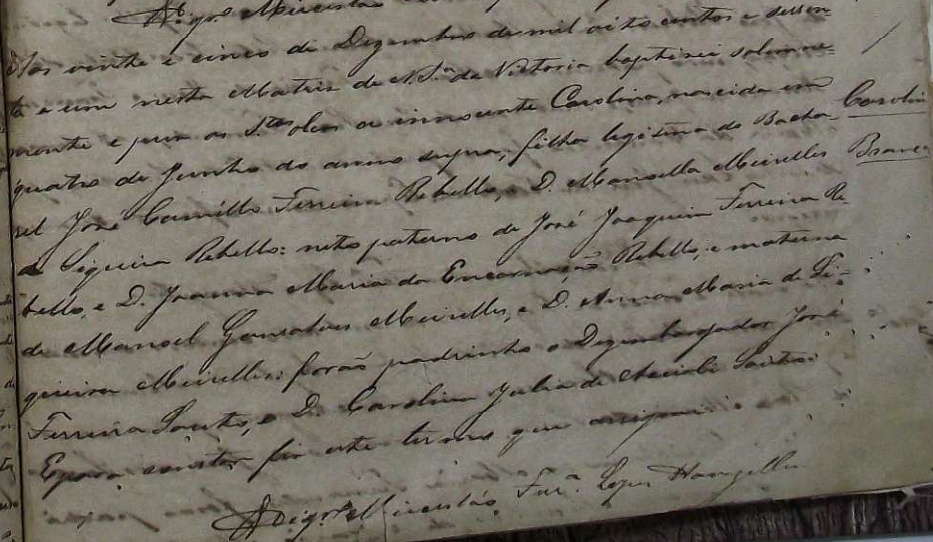 Aos vinte e cinco de Dezembro de mil oito centos e sessen-
ta e um nesta Matriz de N. S.ª da Victoria baptisei solemne-
mente e puz os S.tos oleos a innocente Carolina, nascida em
quatro de Junho do anno supra, filha legitima do Bacha-
rel José Camillo Ferreira Rebello, e D. Manoella Meirelles
de Siqueira Rebello: neta paterna de José Joaquim Ferreira Re-
bello, e D. Joanna Maria da Encarnação Rebello, e materna
de Manoel Gonsalves Meirelles, e D. Anna Maria de Si-
queira Meirelles: forão padrinhos o Dezembargador José
Ferreira Souto, e D. Carolina Julia de Accioli Souto.
E para constar fiz este termo que assignei
O Vigr.º Fur.ª Lopes
Carolina
Branca